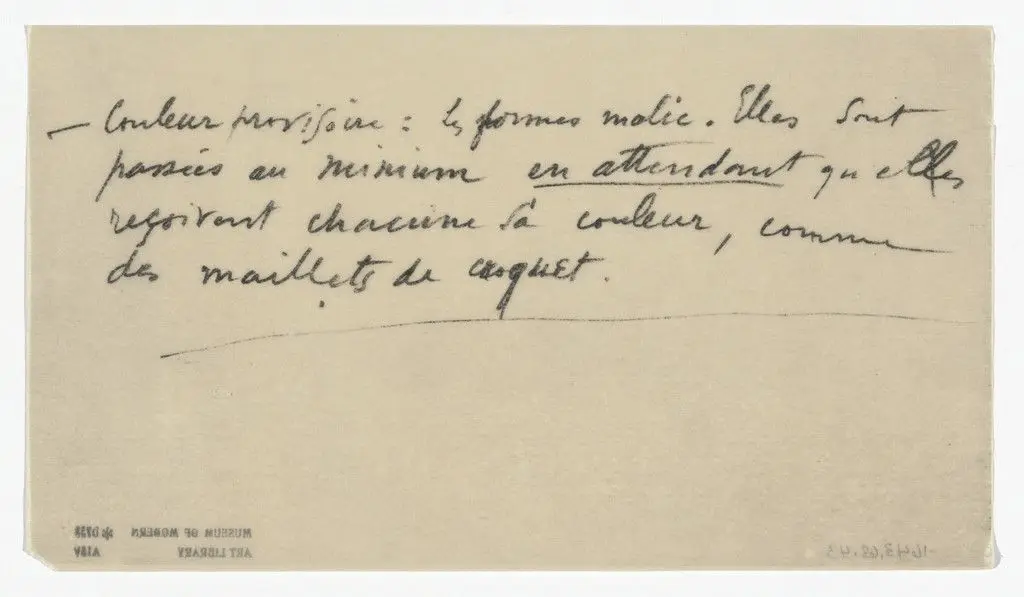 — Couleur provisoire : Les formes malic. Elles sont
passées au minium en attendant qu elles
reçoivent chacune sa couleur, comme
des maillets de croquet.
MUSEUM OF MODERN
ART LIBRARY